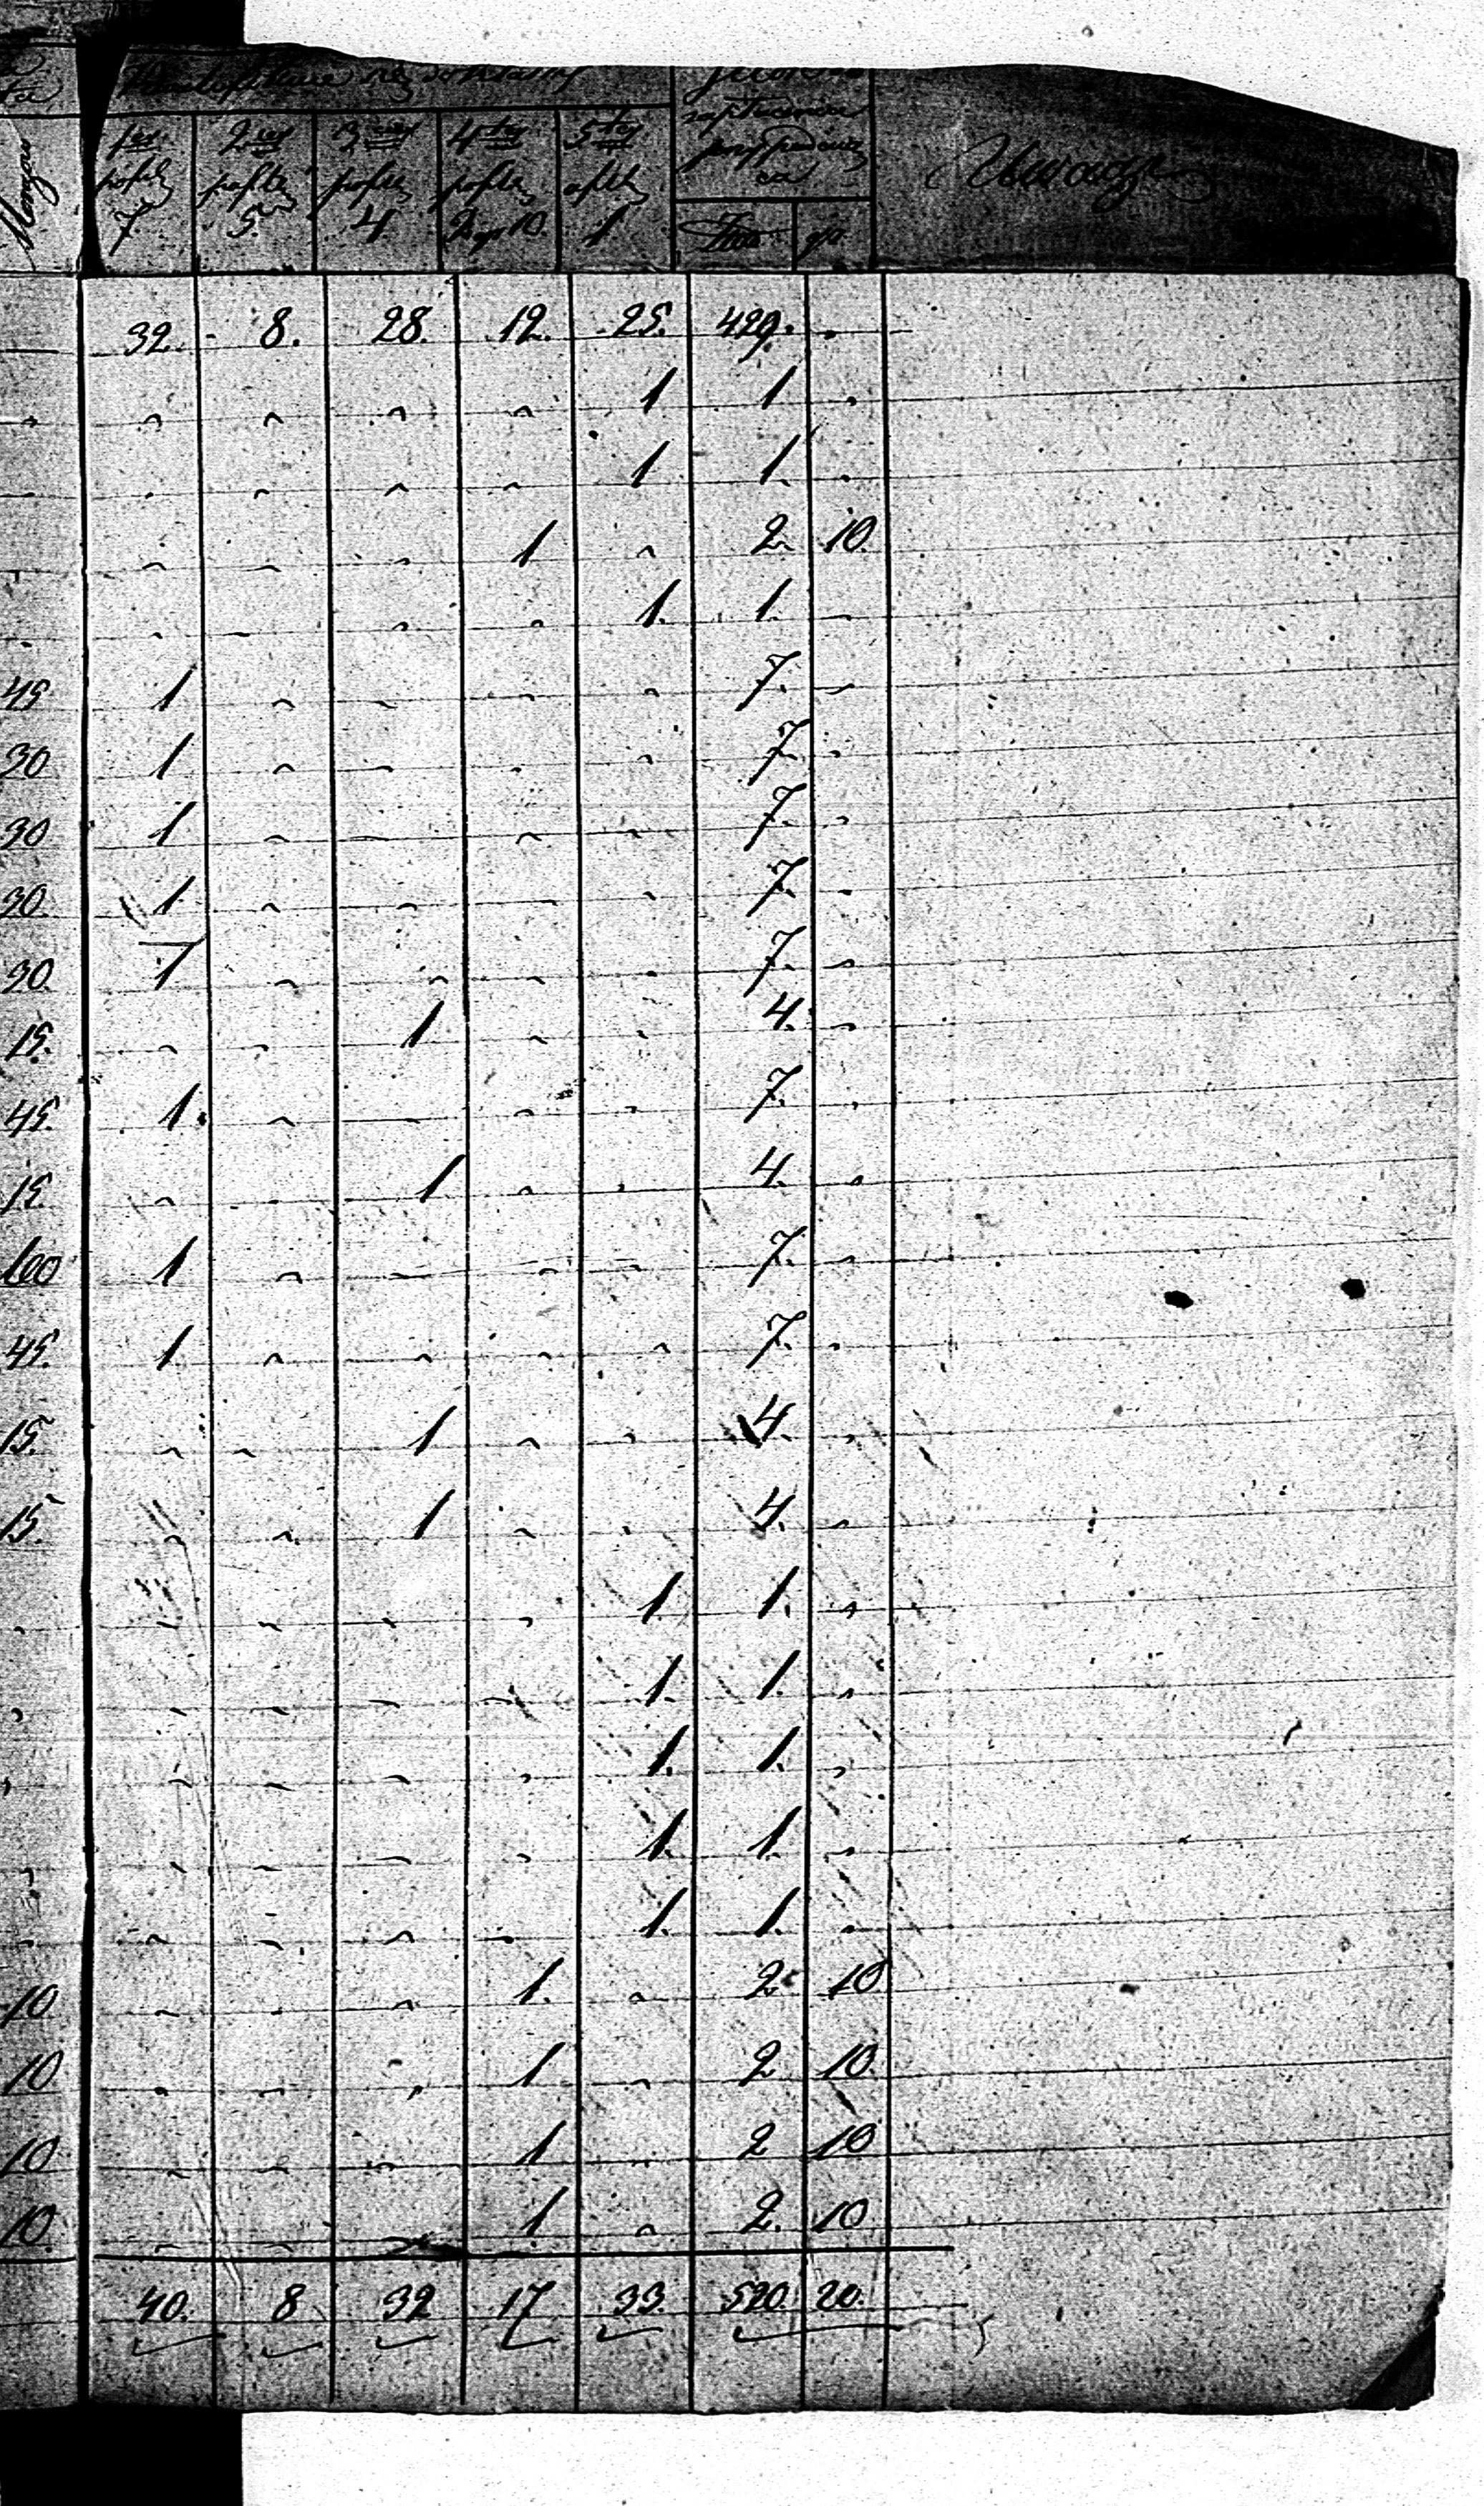 1szej 2giej 3ciej 4tej 5tej Uwaga
7 5. 4 2 gr 10. 1. gr.
32. 8. 28. 12. 25. 429. .
„ „ „ „ „ 1 1 .
„ . „ „ „ 1 1. .
„ „ „ 1 „ 2 10.
. . „ „ „ 1. 1. „
45 1 „ „ „ „ 7. „
30 1 „ „ „ „ 7. „
30 1 „ „ „ „ 7. „
30. 1. „ „ „ „ 7. „
30. 1 „ „ „ „ 7. „
15. „ „ 1 „ „ 4. „
45. 1. „ „ „ „ 7. „
15. „ „ 1 „ „ 4. „
60 1 „ „ „ „ 7. „
45. 1 „ „ „ „ 7. „
15. „ „ 1 „ „ 4. „
15. „ „ 1 „ „ 4. „
„ „ „ „ „ 1. 1. „
„ „ „ „ „ 1. 1. „
„ „ „ „ „ 1. 1. „
„ „ „ „ „ 1. 1. „
„ „ „ „ „ 1. 1. „
10 „ „ „ 1. „ 2 10
10 „ „ „ 1 „ 2 10.
10 „ „ „ 1 „ 2 10
10. „ „ „ 1 „ 2. 10.
40. 8 32 17 33. 520. 20.